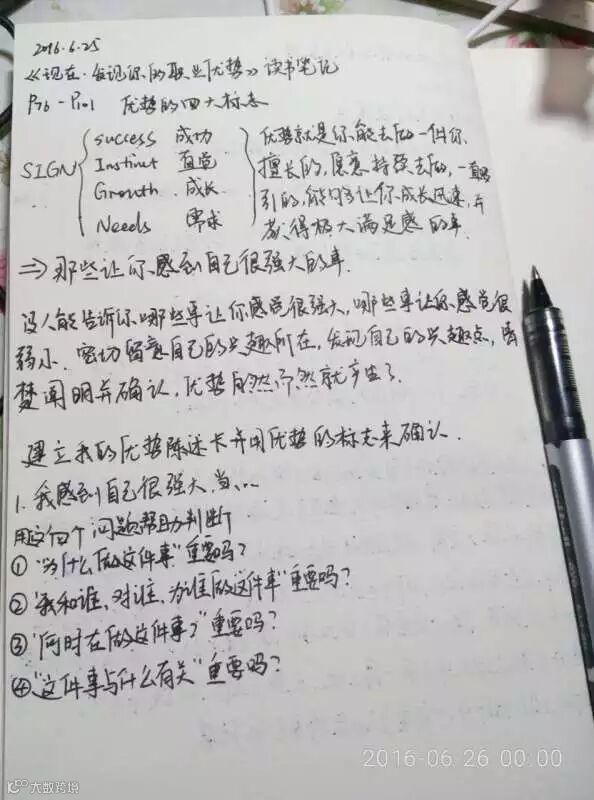 2016.6.25
《现在,发现你的职业优势》读书笔记
P76-P101 优势的四大标志
SIGN
success 成功
Instinct 直觉
Growth 成长
Needs 需求
优势就是你能去做一件你
擅长的,愿意持续去做,一直吸
引的,能够让你成长迅速,并
获得极大满足感的事.
⇒那些让你感到自己很强大的事.
没人能告诉你哪些事让你感觉很强大,哪些事让你感觉很
弱小.密切留意自己的兴趣所在,发现自己的兴趣点,清
楚阐明并确认,优势自然而然就产生了.
建立我的优势陈述卡并用优势的标志来确认.
1.我感到自己很强大,当....
用这四个问题帮助判断
①“为什么做这件事”重要吗?
②“我和谁、对谁、为谁做这件事”重要吗?
③“何时在做这件事?”重要吗?
④“这件事与什么有关”重要吗?
2016 06 26 00:00
大数跨境